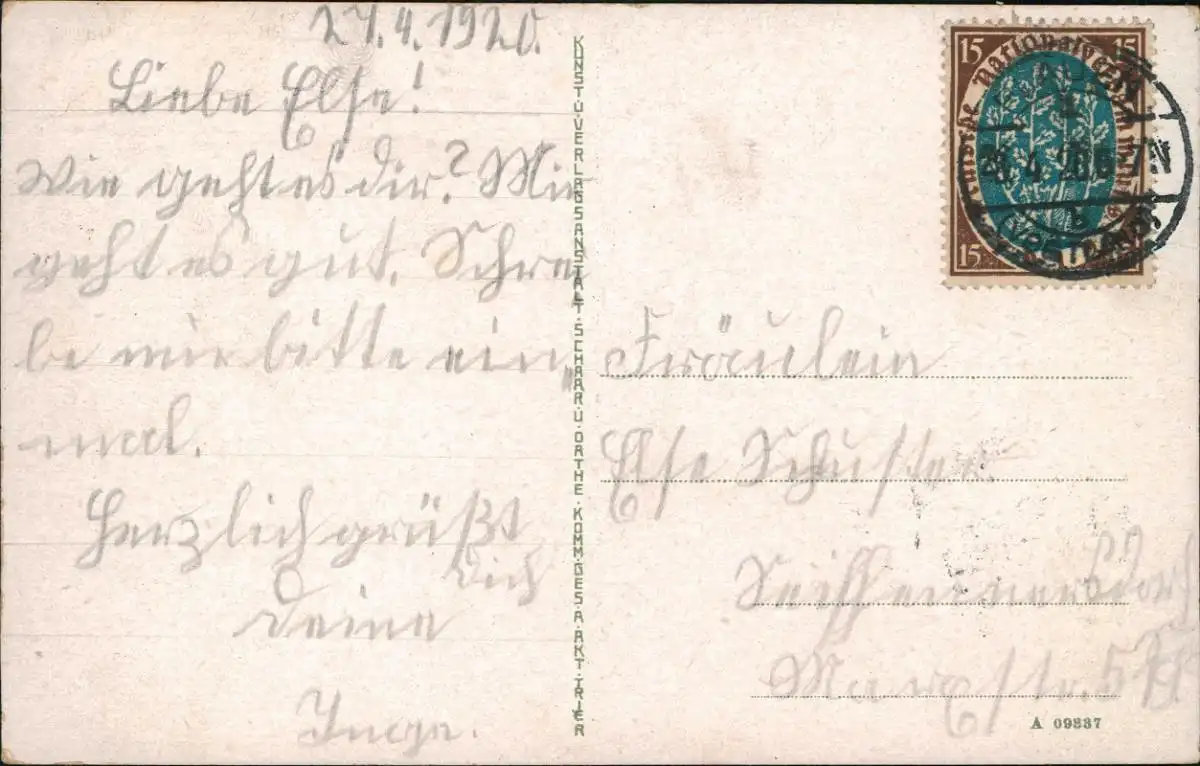 27.4.1920.
Liebe Else!
Wie geht es dir? Mir
geht es gut. Schrei
be mir bitte ein„
mal.
Herzlich grüßt
Dich
Deine
KUNST.U.VERLAGSANSTALT.SCHAAR.U.DATHE.KOMM.GES.A.AKT.TRIER
15 15
Deutsche Nationalversammlung
15
4 20
Fräulein
Else Schuster
Seifhennersdorf
A 09887